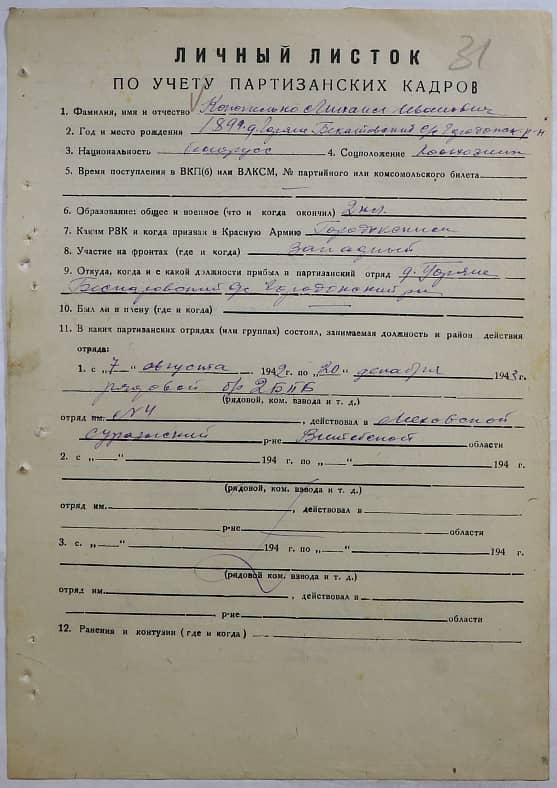 31
ЛИЧНЫЙ ЛИСТОК
ПО УЧЕТУ ПАРТИЗАНСКИХ КАДРОВ
1. Фамилия, имя и отчество Михаил Иванович
2. Год и место рождения 1899 д.
3. Национальность белорусс 4. Соцположение Колхозник
5. Время поступления в ВКП(б) или ВЛКСМ, № партийного или комсомольского билета
6. Образование: общее и военное (что и когда окончил) 2 кл.
7. Каким РВК и когда призван в Красную Армию
8. Участие на фронтах (где и когда) Западный
9. Откуда, когда и с какой должности прибыл в партизанский отряд д.
с/с
10. Был ли в плену (где и когда)
11. В каких партизанских отрядах (или группах) состоял, занимаемая должность и район действия
отряда:
1. с „7“ августа 1942 г. по „20“ декабря 1943 г.
рядовой бр 2 БПБ
(рядовой, ком. взвода и т. д.)
отряд им. №4, действовал в Меховской
Суражский р-не Витебской области
2. с „—“ 194 г. по „—“ 194 г.
(рядовой, ком. взвода и т. д.)
отряд им. , действовал в
р-не области
3. с „—“ 194 г. по „—“ 194 г.
(рядовой ком. взвода и т. д.)
отряд им. , действовал в
р-не области
12. Ранения и контузии (где и когда)